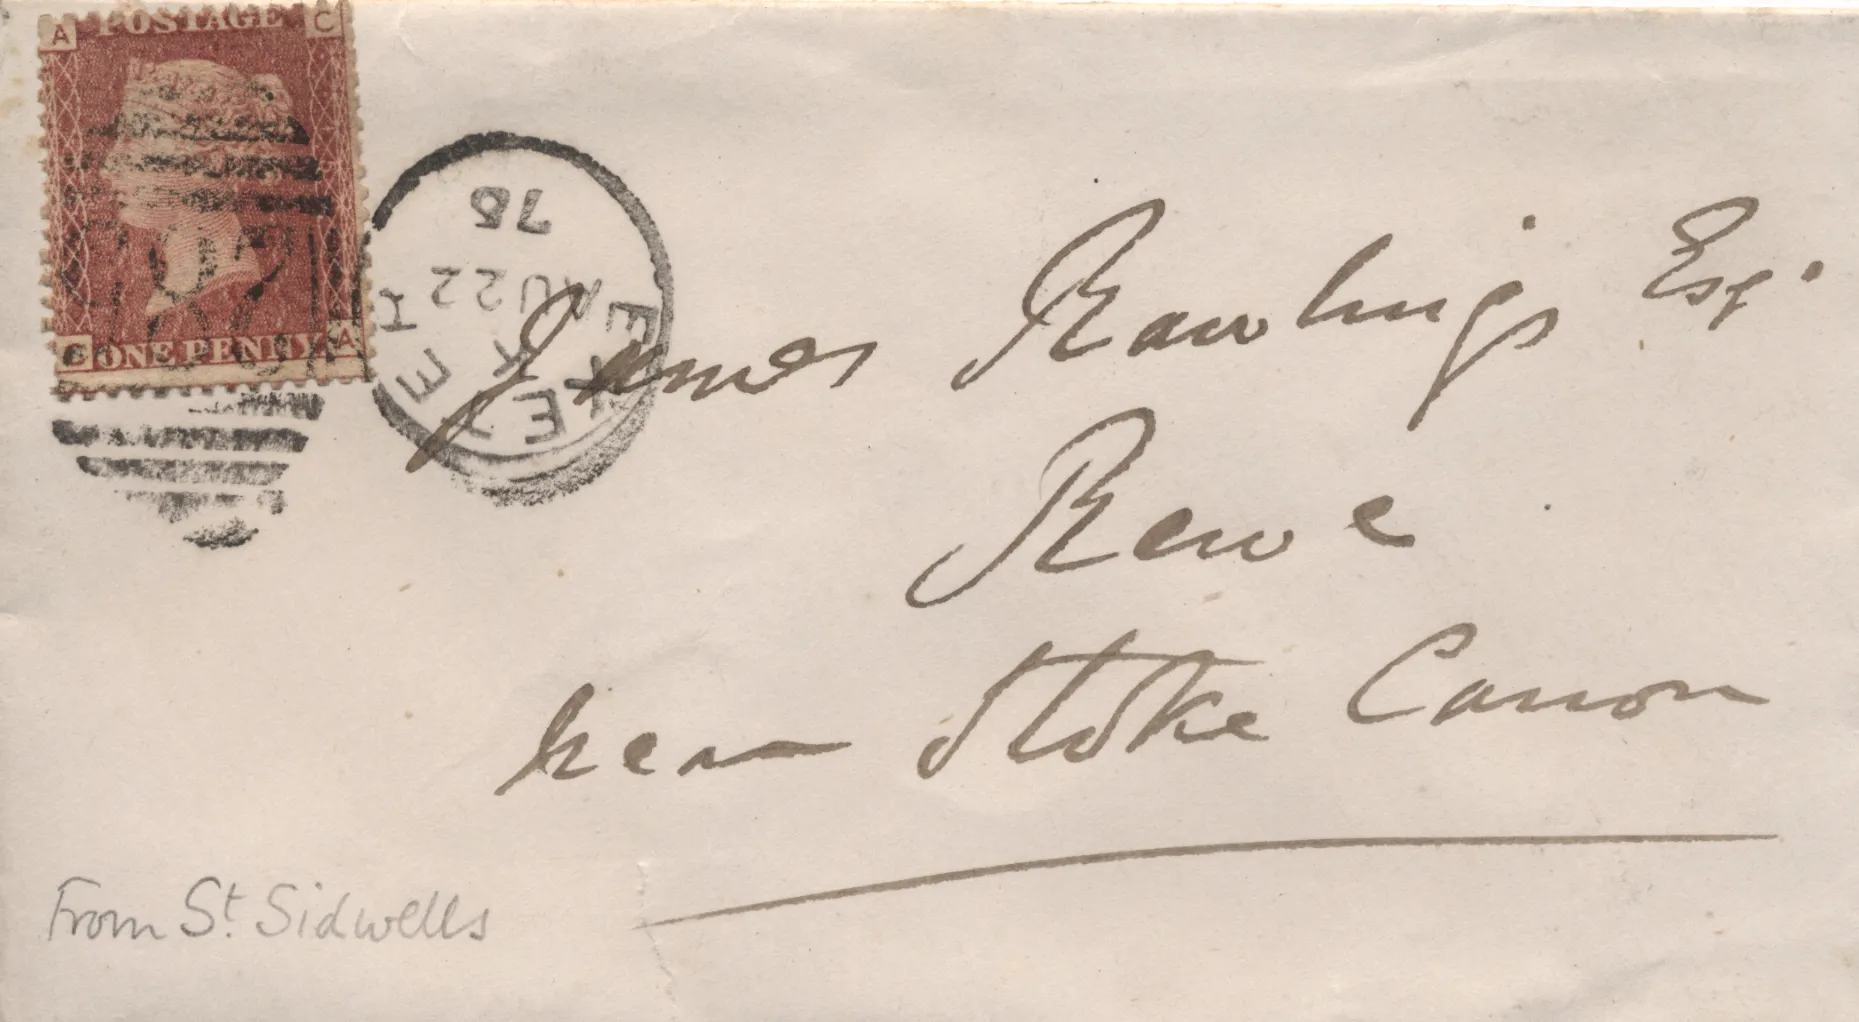 A POSTAGE C
C ONE PENNY A
EXETER
AU 22
75
James Rawlings Esq.
Rewe
near Stoke Canon
From St. Sidwells